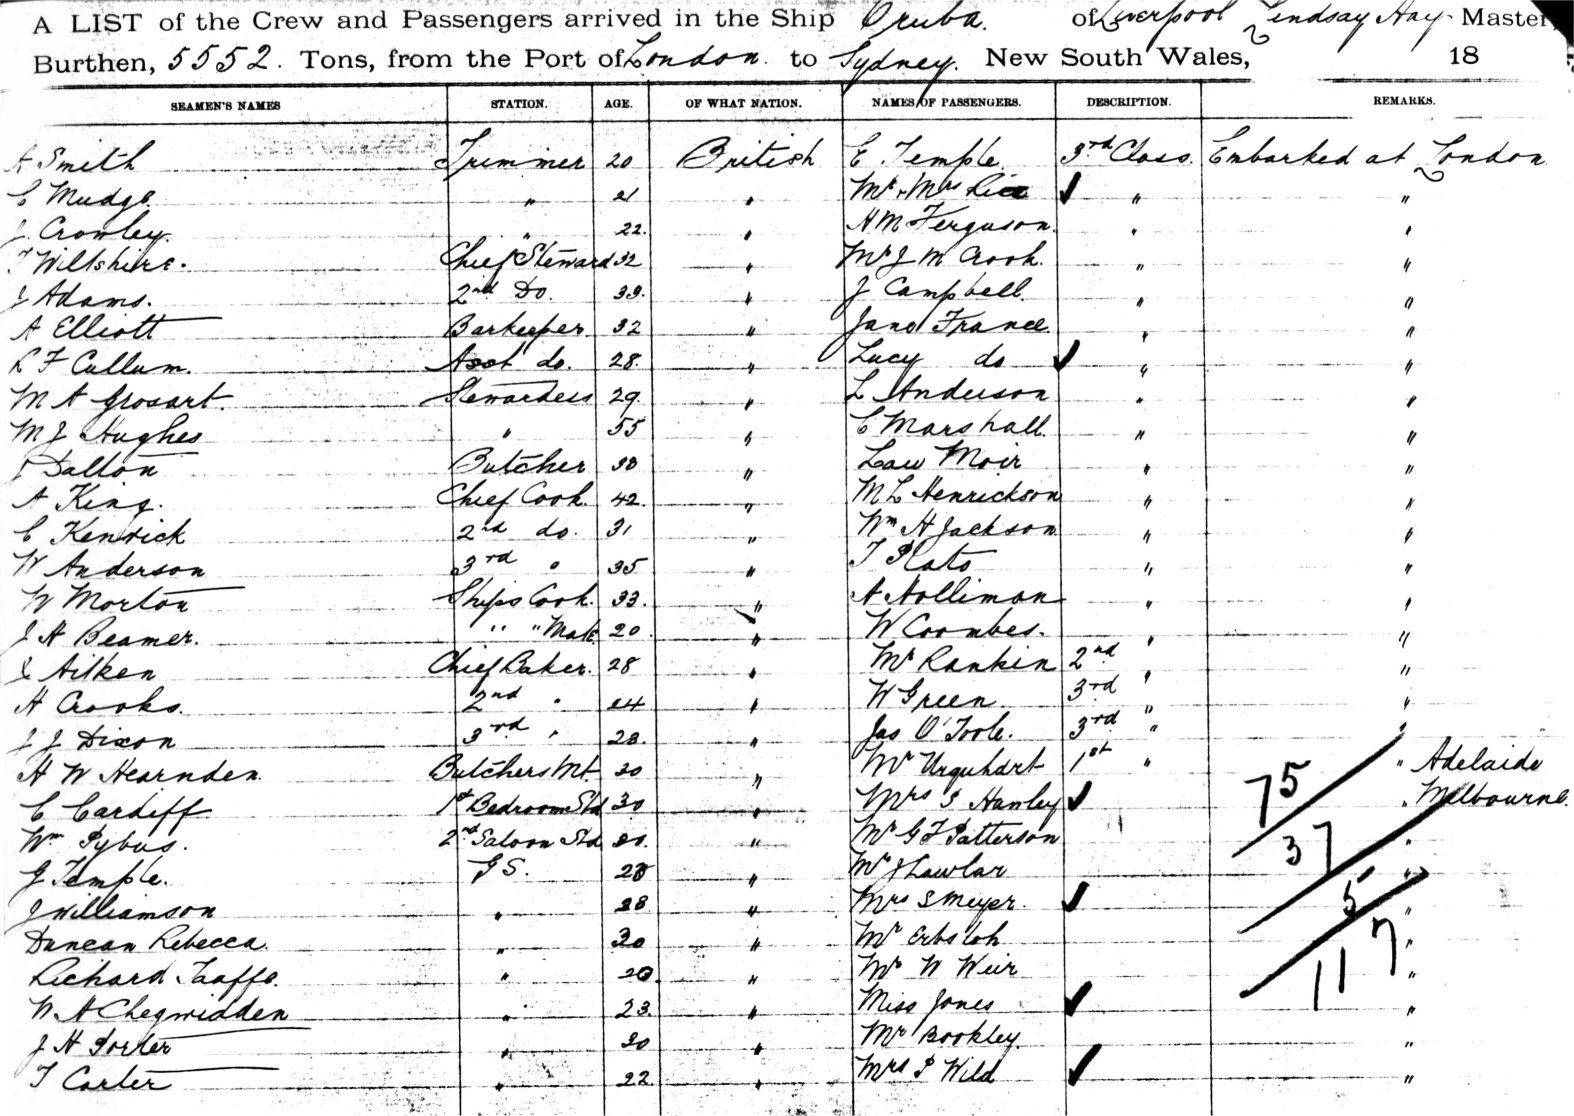 A LIST of the Crew and Passengers arrived in the Ship Oruba. of Liverpool Lindsay Hay Master,
Burthen, 5552. Tons, from the Port of London to Sydney. New South Wales, 18
SEAMEN'S NAMES STATION. AGE. OF WHAT NATION. NAMES OF PASSENGERS. DESCRIPTION. REMARKS.
A Smith Trimmer 20 British E Temple 3rd Class. Embarked at London
C Mudge. " 21 " Mr & Mrs Rice ✓ " "
J Crowley. " 22. " H M Ferguson. " "
T Wiltshire. Chief Steward 32 " Mr J M Crook. " "
J Adams. 2nd Do. 39. " J Campbell. " "
A Elliott Barkeeper. 32 " Jane France. " "
L F Cullum. Asst do. 28. " Lucy do ✓ " "
M A Grosart. Stewardess 29. " L Anderson " "
M J Hughes " 55 " C Marshall. " "
Dalton Butcher 38 " Law Moir " "
A King. Chief Cook. 42. " M L Henrickson " "
C Kendrick 2nd do. 31 " Wm H Jackson " "
W Anderson 3rd " 35 " T Plato " "
W Morton Ships Cook. 33. " A Holliman " "
J H Beamer. " " Mate 20. " W Coombes. " "
J Aitken Chief Baker. 28 " Mr Rankin 2nd " "
H Crooks. 2nd " 24 " W Green. 3rd " "
J J Dixon 3rd " 28. " Jas O'Toole. 3rd " "
H W Hearnden. Butchers Mt. 30 " Mr Urquhart 1st " 75 " Adelaide
C Cardiff 1st Bedroom Std 30 " Mrs S Hanley ✓ " Melbourne.
Wm Pybus. 2nd Saloon Std 20. " Mr G F Patterson 37 "
G Temple. G S. 28 " Mr J Lawlar "
J Williamson " 28 " Mrs S Meyer. ✓ 5 "
Duncan Rebecca. " 30 " Mr Erbsloh "
Richard Taaffe. " 20. " Mr W Weir 117 "
W. A Chegwidden " 23. " Miss Jones ✓ "
J H Porter " 20 " Mr Bookley. "
T Carter " 22. " Mrs P Wild ✓ "